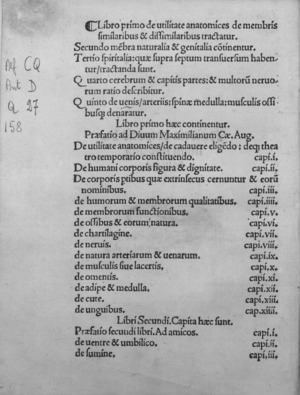 Libro primo de utilitate anatomices de membris
similaribus & dissimilaribus tractatur.
Secundo mẽbra naturalia & genitalia cõtinentur.
Tertio spiritalia: quæ supra septum transuersum haben-
tur/tractanda sunt.
Quarto cerebrum & capitis partes: & motorũ neruo-
rum ratio describitur.
Quinto de uenis/arteriis: spinæ medulla: musculis ossi-
busq; denaratur.
Libro primo hæc continentur.
Præfatio ad Diuum Maximilianum Cæ. Aug.
De utilitate anatomices/de cadauere eligẽdo: deq; thea
tro temporario constituendo. capi.i.
De humani corporis figura & dignitate. capi.ii.
De corporis ptibus quæ extrinsecus cernuntur & eorũ
nominibus. capi.iii.
de humorum & membrorum qualitatibus. capi.iiii.
de membrorum functionibus. capi.v.
de ossibus & eorum natura. capi.vi.
de chartilagine. capi.vii.
de neruis. capi.viii.
de natura arteriarum & uenarum. capi.ix.
de musculis siue lacertis. capi.x.
de omentis. capi.xi.
de adipe & medulla. capi.xii.
de cute. capi.xiii.
de unguibus. cap.xiiii.
Libri Secundi. Capita hæc sunt.
Præfatio secundi libri. Ad amicos. capi.i.
de uentre & umbilico. capi.ii.
de sumine. capi.iii.
CQ
D
Q 27
158